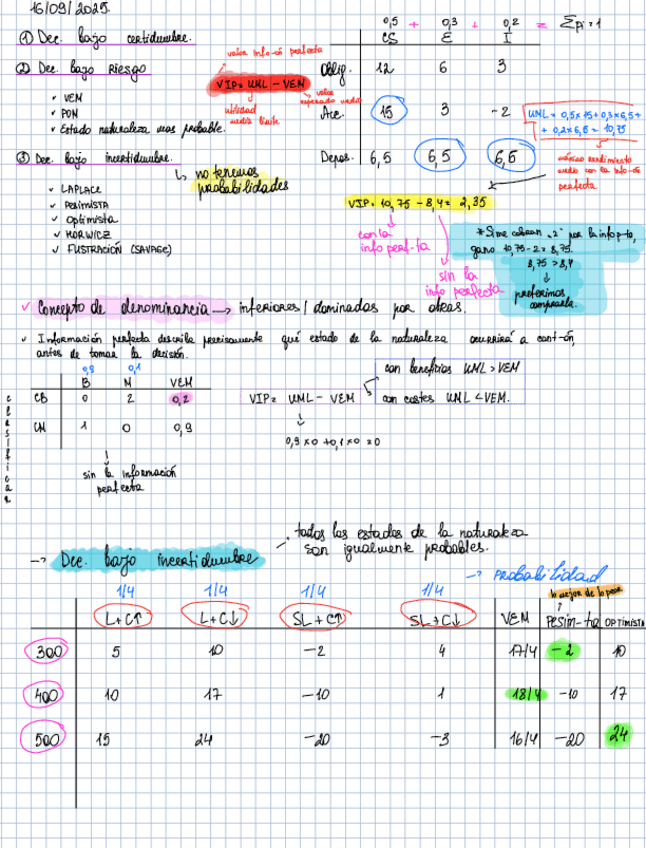 16/09/2025.
0,5 + 0,3 + 0,2 = Σpi = 1
① Dec. bajo certidumbre.
CS E I
valor info-ón perfecta
② Dec. bajo Riesgo
VIP = UML - VEM
Oblig. 12 6 3
valor esperado medio
utilidad media límite
✓ VEM
✓ POM
✓ Estado naturaleza mas probable.
Acc. 15 3 -2
UML = 0,5x15 + 0,3x6,5 +
+ 0,2x6,5 = 10,75
③ Dec. bajo incertidumbre.
Depos. 6,5 6,5 6,5
máximo rendimiento medio con la info-ón perfecta.
↳ no tenemos probabilidades
✓ LAPLACE
✓ PESIMISTA
✓ Optimista
✓ HORWICZ
✓ FUSTRACIÓN (SAVAGE)
VIP = 10,75 - 8,4 = 2,35
con la info perf-ta
sin la info perfecta
* Si me cobran "2" por la info p-ta,
gano 10,75 - 2 = 8,75.
8,75 > 8,4
↓
preferimos comprarla.
✓ Concepto de denominancia → inferiores / dominadas por otras.
✓ Información perfecta describe precisamente qué estado de la naturaleza ocurrirá a cont-ón,
antes de tomar la decisión.
0,9 0,1
B M VEM
CB 0 2 0,2
CM 1 0 0,9
clasificar
VIP = UML - VEM
con beneficios UML > VEM
con costes UML < VEM.
0,9 x 0 + 0,1 x 0 = 0
sin la información perfecta
→ Dec. bajo incertidumbre
todos los estados de la naturaleza
son igualmente probables.
→ PROBABILIDAD
1/4 1/4 1/4 1/4
lo mejor de lo peor
L+C↑ L+C↓ SL+C↑ SL+C↓ VEM Pesim-ta OPTIMISTA
300 5 10 -2 4 17/4 -2 10
400 10 17 -10 1 18/4 -10 17
500 15 24 -20 -3 16/4 -20 24